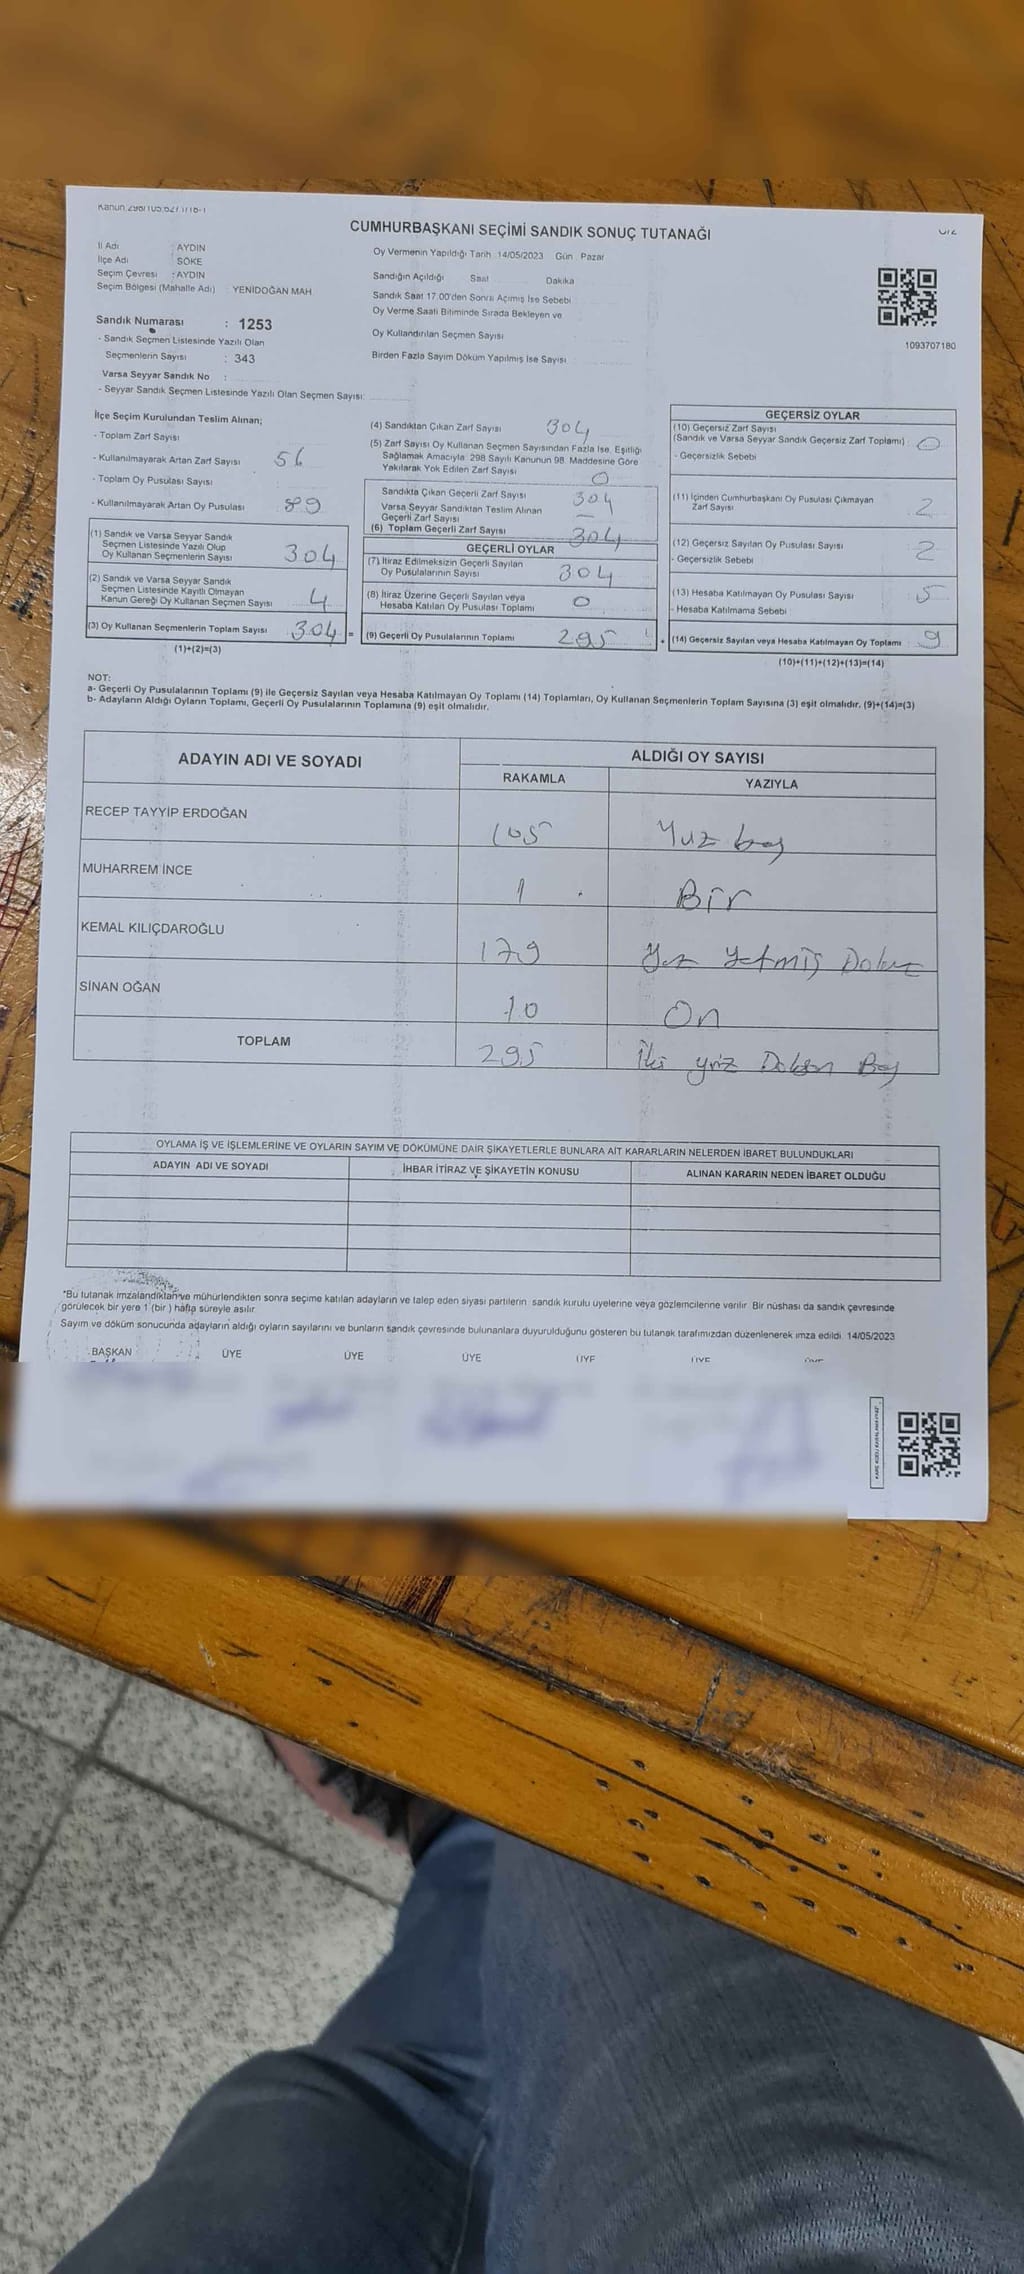 CUMHURBAŞKANI SEÇİMİ SANDIK SONUÇ TUTANAĞI
İl Adı : AYDIN
İlçe Adı : SÖKE
Seçim Çevresi : AYDIN
Seçim Bölgesi (Mahalle Adı) : YENİDOĞAN MAH.
Sandık Numarası : 1253
- Sandık Seçmen Listesinde Yazılı Olan
Seçmenlerin Sayısı : 343
Varsa Seyyar Sandık No :
- Seyyar Sandık Seçmen Listesinde Yazılı Olan Seçmen Sayısı:
Oy Vermenin Yapıldığı Tarih 14/05/2023 Gün Pazar
Sandığın Açıldığı Saat Dakika
Sandık Saat 17.00'den Sonra Açımış İse Sebebi
Oy Verme Saati Bitiminde Sırada Bekleyen ve
Oy Kullandırılan Seçmen Sayısı
Birden Fazla Sayım Döküm Yapılmış İse Sayısı
1093707180
İlçe Seçim Kurulundan Teslim Alınan;
- Toplam Zarf Sayısı
- Kullanılmayarak Artan Zarf Sayısı 56
- Toplam Oy Pusulası Sayısı
- Kullanılmayarak Artan Oy Pusulası 89
(1) Sandık ve Varsa Seyyar Sandık
Seçmen Listesinde Yazılı Olup
Oy Kullanan Seçmenlerin Sayısı 304
(2) Sandık ve Varsa Seyyar Sandık
Seçmen Listesinde Kayıtlı Olmayan
Kanun Gereği Oy Kullanan Seçmen Sayısı 4
(3) Oy Kullanan Seçmenlerin Toplam Sayısı 304 =
(1)+(2)=(3)
(4) Sandıktan Çıkan Zarf Sayısı 304
(5) Zarf Sayısı Oy Kullanan Seçmen Sayısından Fazla İse, Eşitliği
Sağlamak Amacıyla 298 Sayılı Kanunun 98. Maddesine Göre
Yakılarak Yok Edilen Zarf Sayısı 0
Sandıkta Çıkan Geçerli Zarf Sayısı 304
Varsa Seyyar Sandıktan Teslim Alınan
Geçerli Zarf Sayısı —
(6) Toplam Geçerli Zarf Sayısı 304
GEÇERLİ OYLAR
(7) İtiraz Edilmeksizin Geçerli Sayılan
Oy Pusulalarının Sayısı 304
(8) İtiraz Üzerine Geçerli Sayılan veya
Hesaba Katılan Oy Pusulası Toplamı 0
(9) Geçerli Oy Pusulalarının Toplamı 295 +
GEÇERSİZ OYLAR
(10) Geçersiz Zarf Sayısı
(Sandık ve Varsa Seyyar Sandık Geçersiz Zarf Toplamı) 0
- Geçersizlik Sebebi
(11) İçinden Cumhurbaşkanı Oy Pusulası Çıkmayan
Zarf Sayısı 2
(12) Geçersiz Sayılan Oy Pusulası Sayısı 2
- Geçersizlik Sebebi
(13) Hesaba Katılmayan Oy Pusulası Sayısı 5
- Hesaba Katılmama Sebebi
(14) Geçersiz Sayılan veya Hesaba Katılmayan Oy Toplamı 9
(10)+(11)+(12)+(13)=(14)
NOT:
a- Geçerli Oy Pusulalarının Toplamı (9) ile Geçersiz Sayılan veya Hesaba Katılmayan Oy Toplamı (14) Toplamları, Oy Kullanan Seçmenlerin Toplam Sayısına (3) eşit olmalıdır. (9)+(14)=(3)
b- Adayların Aldığı Oyların Toplamı, Geçerli Oy Pusulalarının Toplamına (9) eşit olmalıdır.
ADAYIN ADI VE SOYADI ALDIĞI OY SAYISI
RAKAMLA YAZIYLA
RECEP TAYYİP ERDOĞAN 105 Yuz beş
MUHARREM İNCE 1 Bir
KEMAL KILIÇDAROĞLU 179 Yüz Yetmiş Dokuz
SİNAN OĞAN 10 On
TOPLAM 295 İki yüz Doksan Beş
OYLAMA İŞ VE İŞLEMLERİNE VE OYLARIN SAYIM VE DÖKÜMÜNE DAİR ŞİKAYETLERLE BUNLARA AİT KARARLARIN NELERDEN İBARET BULUNDUKLARI
ADAYIN ADI VE SOYADI İHBAR İTİRAZ VE ŞİKAYETİN KONUSU ALINAN KARARIN NEDEN İBARET OLDUĞU
*Bu tutanak imzalandıktan ve mühürlendikten sonra seçime katılan adayların ve talep eden siyasi partilerin sandık kurulu üyelerine veya gözlemcilerine verilir. Bir nüshası da sandık çevresinde
görülecek bir yere 1 (bir) hafta süreyle asılır.
Sayım ve döküm sonucunda adayların aldığı oyların sayılarını ve bunların sandık çevresinde bulunanlara duyurulduğunu gösteren bu tutanak tarafımızdan düzenlenerek imza edildi. 14/05/2023
BAŞKAN ÜYE ÜYE ÜYE ÜYE ÜYE